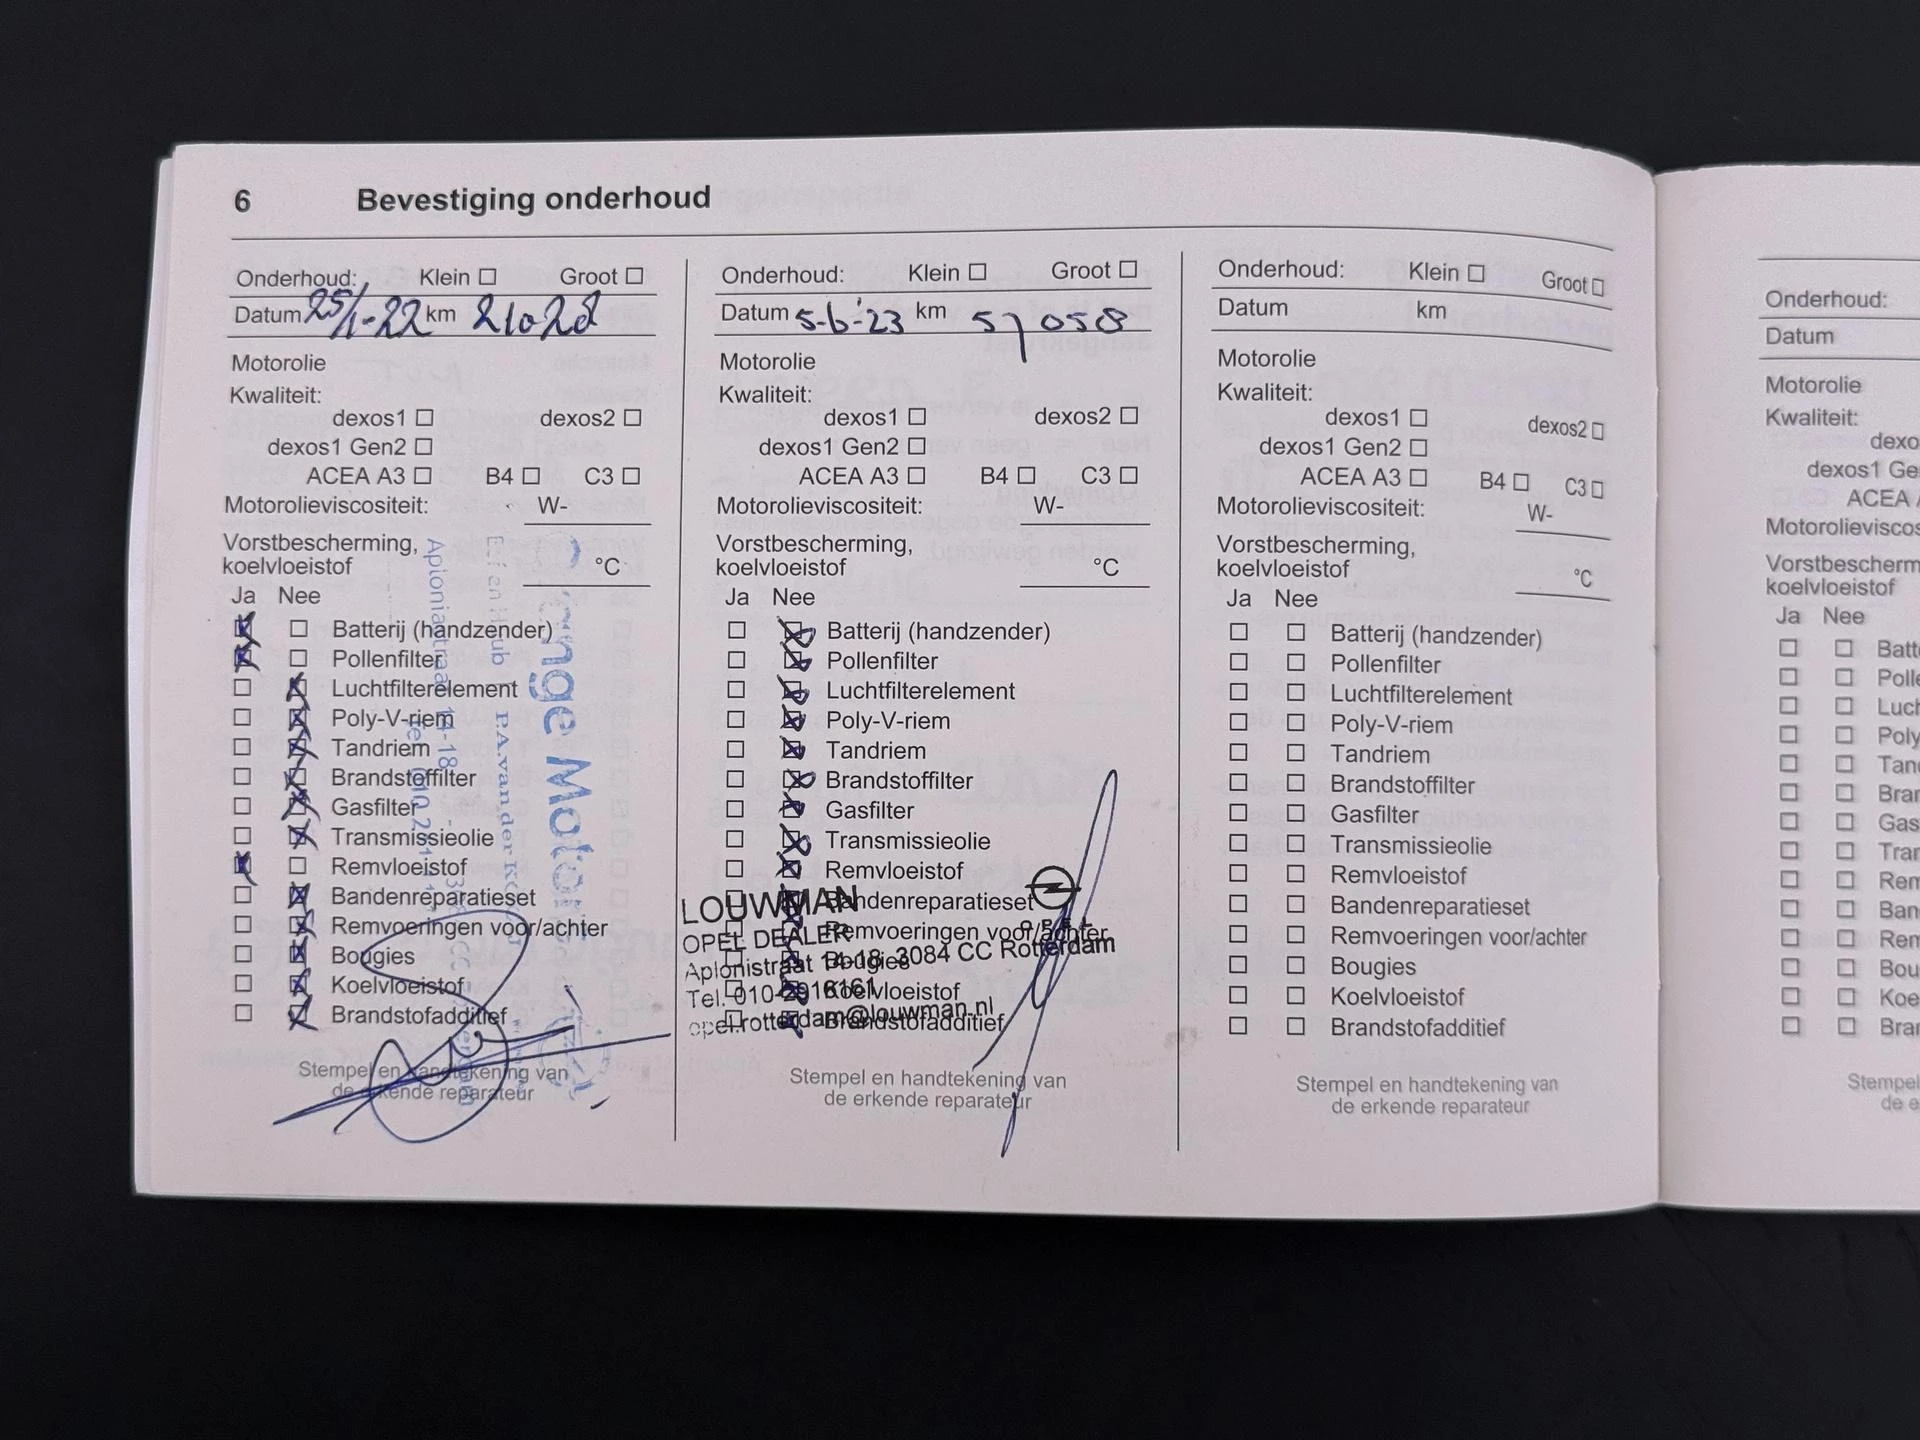 6 Bevestiging onderhoud
Onderhoud: Klein Groot
Datum 25/1-22 km 21022
Motorolie
Kwaliteit:
dexos1 dexos2
dexos1 Gen2
ACEA A3 B4 C3
Motorolieviscositeit: W-
Vorstbescherming,
koelvloeistof °C
Ja Nee
Batterij (handzender)
Pollenfilter
Luchtfilterelement
Poly-V-riem
Tandriem
Brandstoffilter
Gasfilter
Transmissieolie
Remvloeistof
Bandenreparatieset
Remvoeringen voor/achter
Bougies
Koelvloeistof
Brandstofadditief
Stempel en handtekening van
de erkende reparateur
Onderhoud: Klein Groot
Datum 5-6-'23 km 57058
Motorolie
Kwaliteit:
dexos1 dexos2
dexos1 Gen2
ACEA A3 B4 C3
Motorolieviscositeit: W-
Vorstbescherming,
koelvloeistof °C
Ja Nee
Batterij (handzender)
Pollenfilter
Luchtfilterelement
Poly-V-riem
Tandriem
Brandstoffilter
Gasfilter
Transmissieolie
Remvloeistof
Bandenreparatieset
Remvoeringen voor/achter
Bougies
Koelvloeistof
Brandstofadditief
LOUWMAN
OPEL
OPEL DEALER
Aplonistraat 14-18 3084 CC Rotterdam
Tel. 010-2916161
opel.rotterdam@louwman.nl
Stempel en handtekening van
de erkende reparateur
Onderhoud: Klein Groot
Datum km
Motorolie
Kwaliteit:
dexos1 dexos2
dexos1 Gen2
ACEA A3 B4 C3
Motorolieviscositeit: W-
Vorstbescherming,
koelvloeistof °C
Ja Nee
Batterij (handzender)
Pollenfilter
Luchtfilterelement
Poly-V-riem
Tandriem
Brandstoffilter
Gasfilter
Transmissieolie
Remvloeistof
Bandenreparatieset
Remvoeringen voor/achter
Bougies
Koelvloeistof
Brandstofadditief
Stempel en handtekening van
de erkende reparateur
Onderhoud:
Datum
Motorolie
Kwaliteit:
dexo
dexos1 Ge
ACEA A
Motorolieviscos
Vorstbescherm
koelvloeistof
Ja Nee
Batt
Polle
Luch
Poly
Tan
Bran
Gas
Tran
Rem
Ban
Rem
Bou
Koe
Bra
Stempel
de e